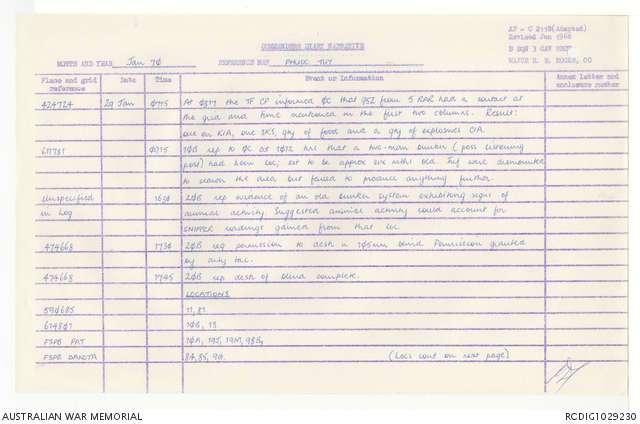 AF - C 2118(Adapted)
Revised Jun 1968
COMMANDERS DIARY NARRATIVE
B SQN 3 CAV REGT
MONTH AND YEAR Jan 70 REFERENCE MAP PHUOC TUY
Place and grid reference Date Time Event or Information Annex letter and enclosure number
424724 29 Jan 0715 At 0817 the TF CP informed OC that 95Z from 5 RAR had a contact at
the grid and time mentioned in the first two columns. Result:
one en KIA, one SKS, qty of food and a qty of explosives C/A.
0915 10B rep to OC at 1012 hrs that a two-man bunker (poss listening
post) had been loc; est to be approx six mths old. Inf were dismounted
to search the area but failed to produce anything further.
Unspecified 1630 20B rep evidence of an old bunker system exhibiting signs of
in log animal activity. Suggested animal activity could account for
SNIFFER readings gained from that loc.
474668 1730 20B req permission to destr a 105mm blind. Permission granted
by arty tac.
474668 1745 20B rep destr of blind complete.
LOCATIONS
590685 11, 81
614801 10B, 13
FSPB PAT 10A,
FSPB DAKOTA 84, 85, 90. (Locs cont on next page)
AUSTRALIAN WAR MEMORIAL RCDIG1029230